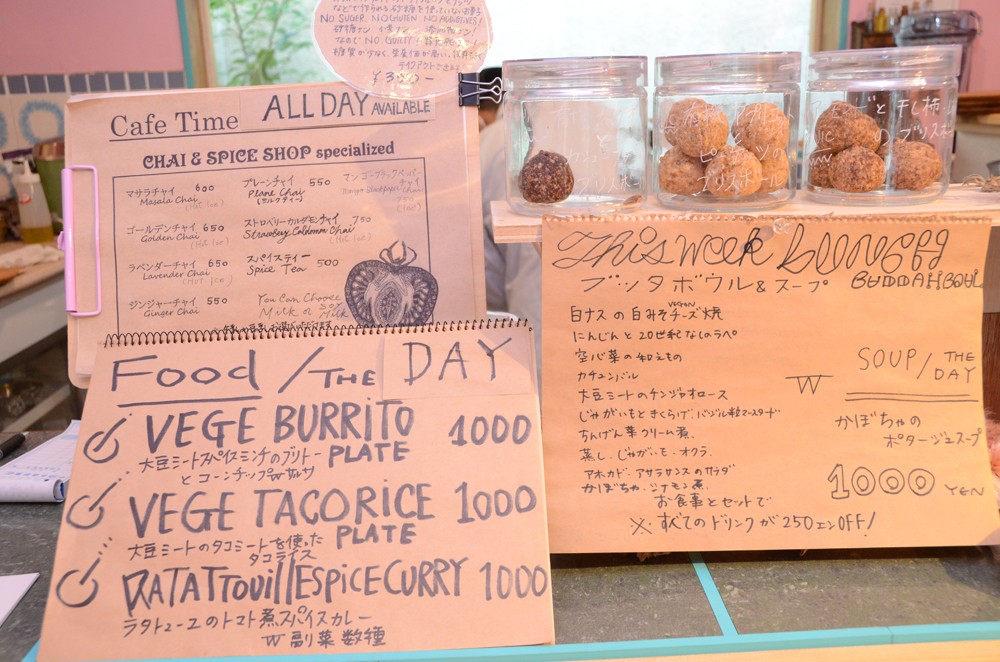 NO SUGAR, NO GLUTEN, NO ADDITIVES!
¥350-
Cafe Time
ALL DAY AVAILABLE
CHAI & SPICE SHOP specialized
マサラチャイ 600
Masala Chai (Hot Ice)
ゴールデンチャイ 650
Golden Chai (Hot Ice)
ラベンダーチャイ 650
Lavender Chai (Hot Ice)
ジンジャーチャイ 550
Ginger Chai
プレーンチャイ 550
Plane Chai
ストロベリーカルダモンチャイ 750
スパイスティー 500
Spice Tea
You Can Choose
Milk or Soy Milk
Food / THE DAY
VEGE BURRITO PLATE 1000
大豆ミートスパイスミンチのブリトー
と コーンチップwサルサ
VEGE TACORICE PLATE 1000
大豆ミートのタコミートを使った
タコライス
RATATTouillESpiCeCURRY 1000
ラタトゥーユのトマト煮スパイスカレー
w 副菜数種
This week LUNCH
ブッタボウル & スープ BUDDAH BOWL
白ナスの白みそチーズ焼
VEGAN
にんじんと20世紀なしのラペ
空心菜の和えもの
カチュンバル
大豆ミートのチンジャオロース
じゃがいもときくらげ、バジル粒マスタード
ちんげん菜クリーム煮
蒸し、じゃがいも、オクラ、
アボカド、アサラサンスのサラダ
かぼちゃ、シナモン煮
W
SOUP / THE DAY
かぼちゃの
ポタージュスープ
1000 YEN
お食事とセットで
※ すべてのドリンクが250エンOFF!